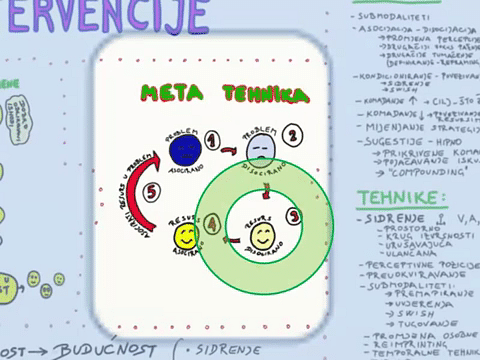 ERVENCIJE
META TEHNIKA
PROBLEM
ASOCIRANO
1
PROBLEM
DISOCIRANO
2
RESURS
DISOCIRANO
3
RESURS
ASOCIRANO
4
5
RESURS U PROBLEM
- SUBMODALITETI
- ASOCIJACIJA - DISOCIJACIJA
→ PROMJENA PERCEPCIJE
→ DRUGAČIJE TUMAČENJE
→ SIDRENJE
→ SWISH
- KOMADANJE ↑ → (CILJ) - ŠTO
- KOMADANJE ↓ →
- MIJENJANJE STRATEGIJ
- SUGESTIJE - HIPNO
→ PRIKRIVENE KOMA
→ POJAČAVANJE ISKU
→ "COMPOUNDING"
TEHNIKE:
- SIDRENJE V, A,
→ PROSTORNO
→ KRUG IZVRSNOSTI
→ URUŠAVAJUĆA
→ ULANČANA
- PERCEPTIVNE POZICIJE
- PREUOKVIRAVANJE
- SUBMODALITETI:
→ PREMAPIRANJE
→ UVJERENJA
→ SWISH
→ TUGOVANJE
- PROMJENA OSOBNE
- REIMPRINTING
- TEMPORALNE TEHNI
NOST → BUDUĆNOST
- SIDRENJE